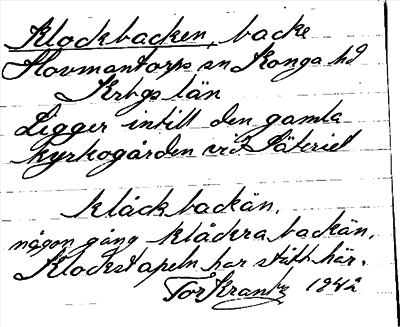 Klockbacken, backe
Hovmantorps sn Konga hd
Krbgs län
Ligger intill den gamla
kyrkogården vid Säteriet
klåckbackän.
någon gång klåckrabackän.
Klockstapeln har stått här.
Tor Krantz